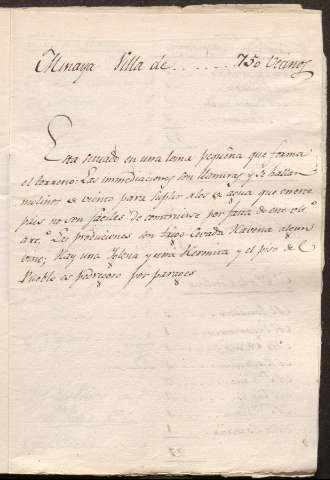 Minaya Villa de ....... 750 Vecinos
Esta situado en una loma pequeña que forma
el terreno: Las inmediaciones son llanuras y se hallan
molinos de viento para suplir a los de agua que en este
pais no son faciles de construirse por falta de este
Las produciones son trigo Cevada Havena algun
vino; Hay una Iglesia y una Hermita y el piso de el
Pueblo es pedregoso por parages